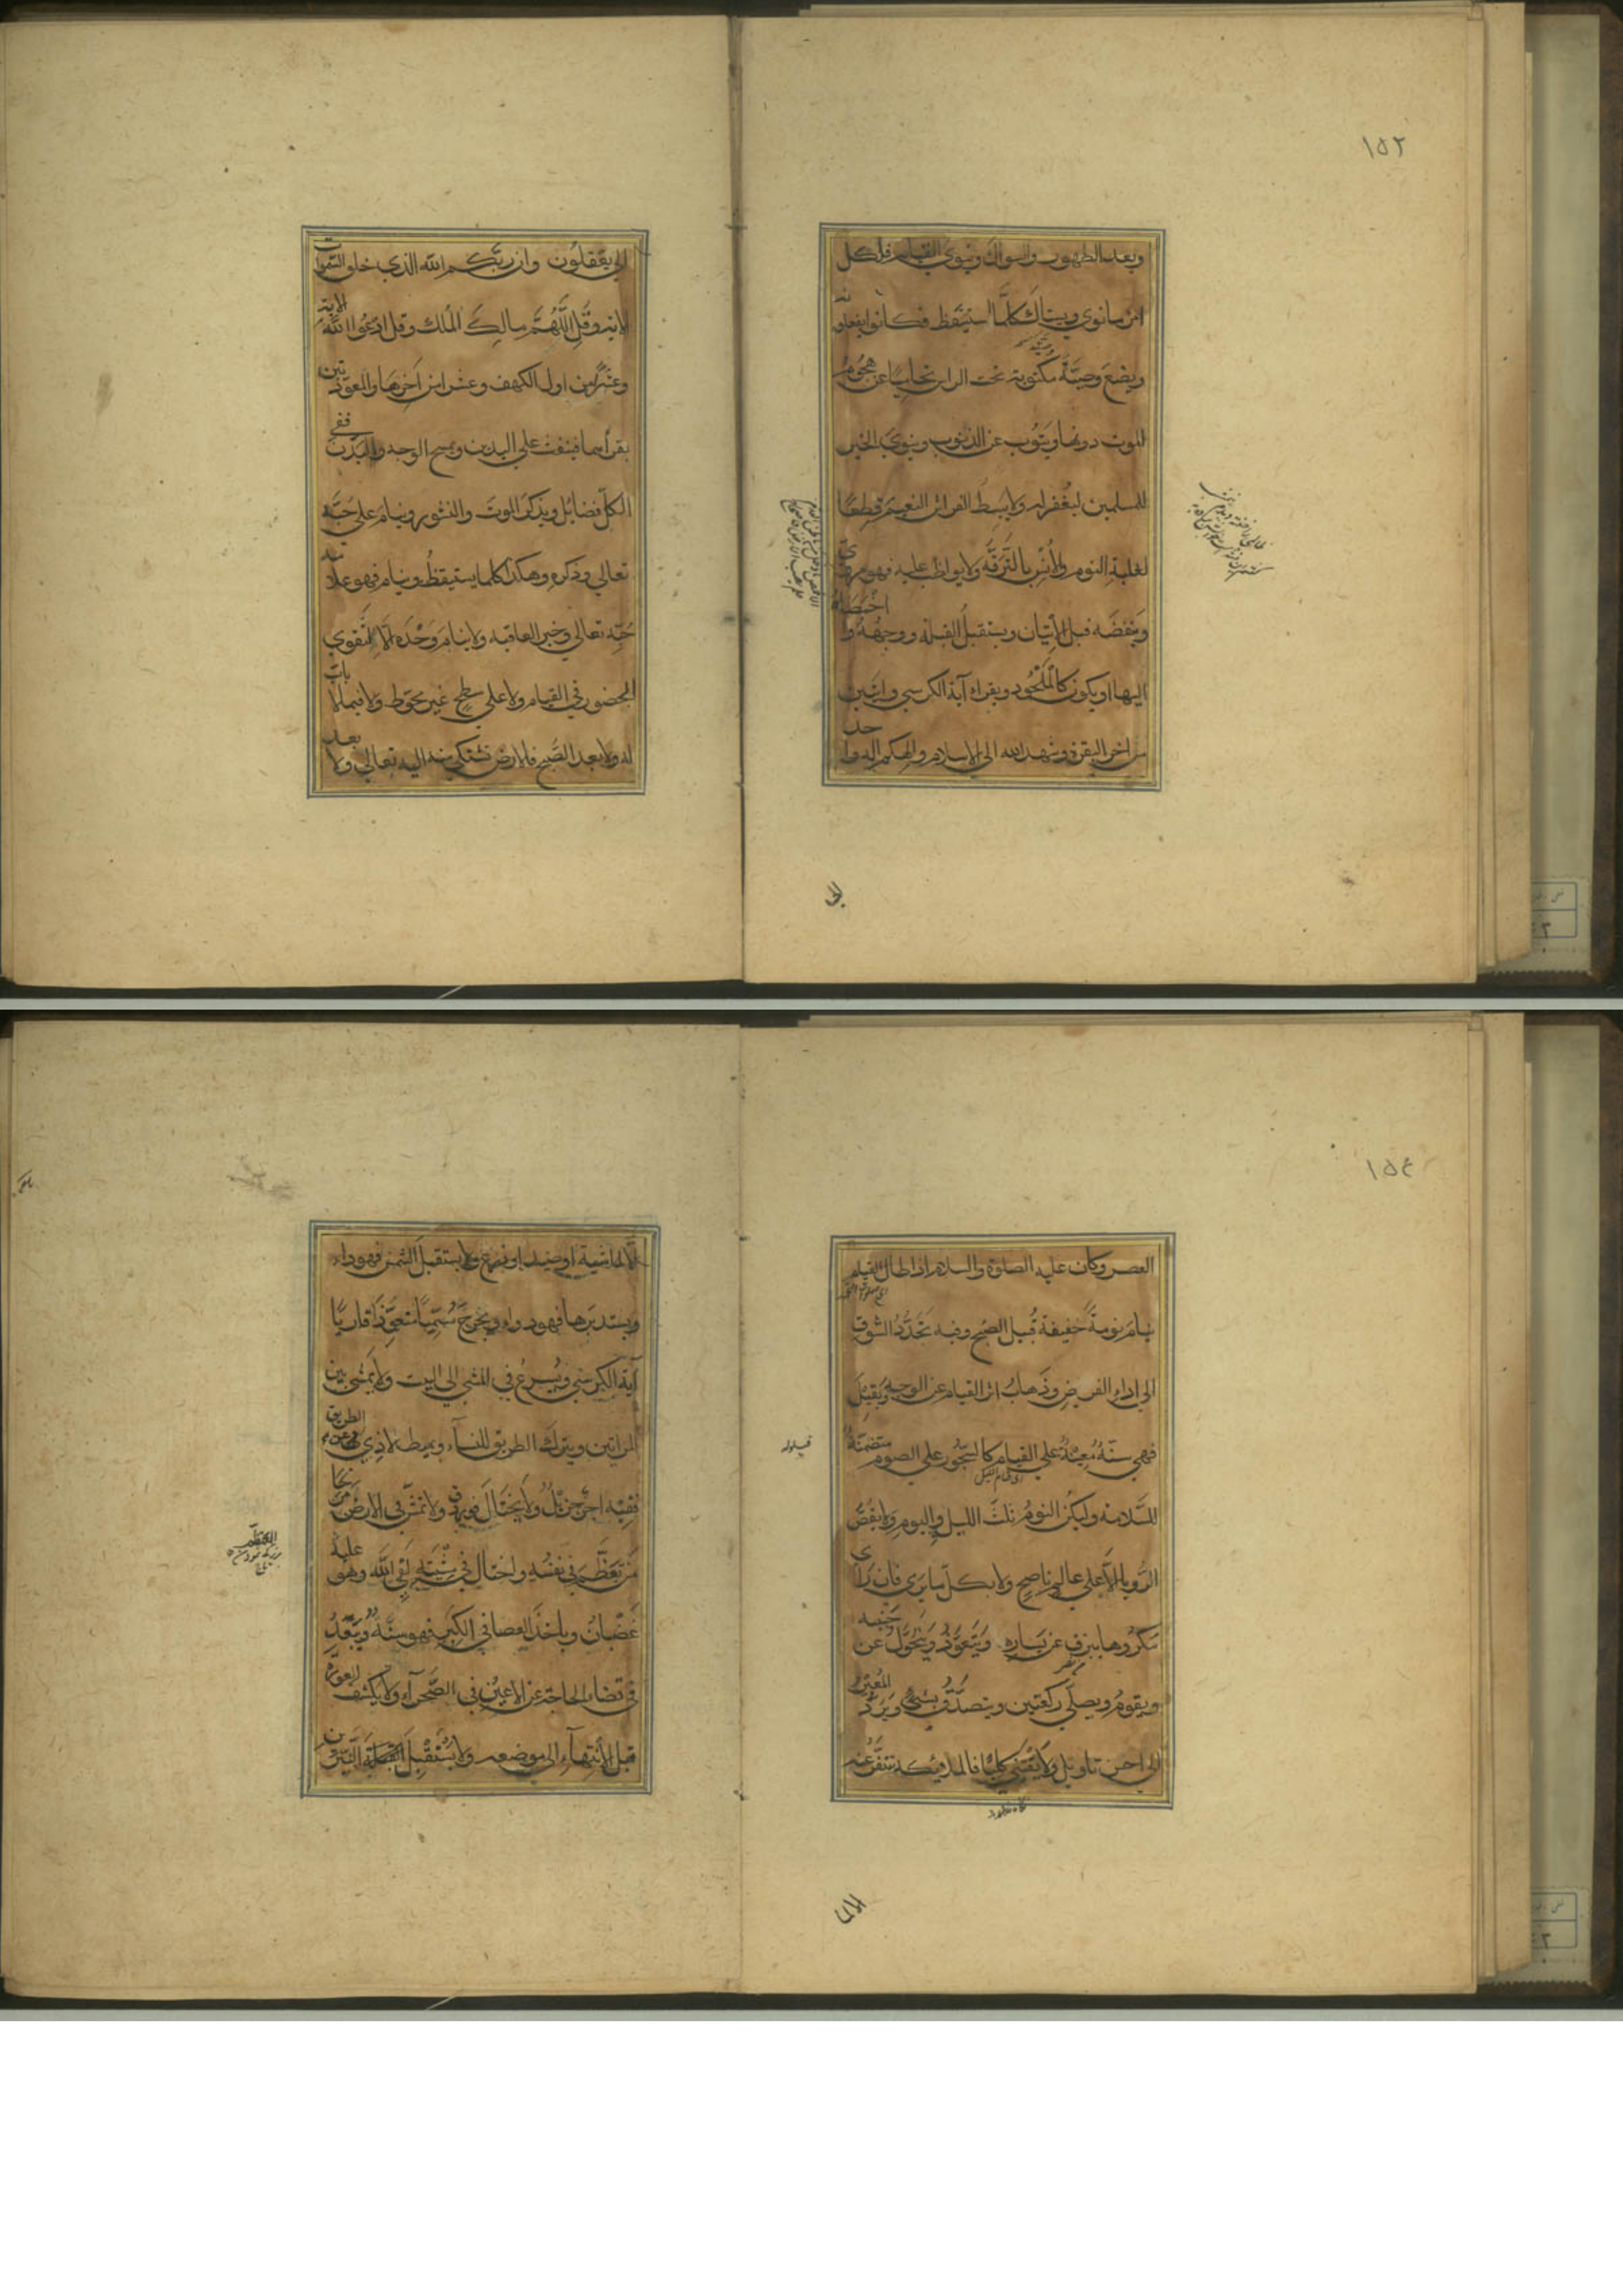 ١٥٢
ويعد الطهور والسواك وينوي القيام فلكل
امرء ما نوي ويستاك كلما استيقظ فكانوا يفعلونه
ويضع وصيّة مكتوبة تحت الراس تحاميا عن هجوم
الموت دونها ويتوب عن الذنوب وينوي الخير
للمسلمين ليغفر له ولا يبسط الفراش النعيم قطعا
لغلبة النوم والأنس بالترفّه ولا يواظب عليه فهو مرويّ
وينفضه قبل الإتيان ويستقبل القبلة ووجهه واخمصاه
اليها او يكون كالملحود ويقراء آية الكرسي وآيتين
من اخر البقرة وشهد الله الي الاسلام والهكم اله واحد
الي
الي يعقلون وان ربّكم الله الذي خلق السّموات
الاية وقل اللّهمّ مالك الملك وقل ادعوا الله الاية
وعشرا من اول الكهف وعشرا من اخرها والمعوّذتين
يقرأهما فينفث علي اليدين ويمسح الوجه والبدن ففي
الكلّ فضائل ويذكر الموت والنشور وينام علي حبّه
تعالي وذكره وهكذا كلما يستيقظ وينام فهو علامة
حبّه تعالي وخير العاقبة ولا ينام وحده الا لتقوي
الحضور في القيام ولا علي سطح غير محوّط ولا فيما لا باب
له ولا بعد الصّبح فالارض تشتكي منه اليه تعالي ولا بعد
١٥٤
العصر وكان عليه الصلوة والسلام اذا طال القيام
ينام نومة خفيفة قبيل الصبح وفيه تجدّد الشوق
الي اداء الفرض وذهاب اثر القيام عن الوجه ويقيل
قيلوله
فهي سنّة معينة علي القيام كالسّحور علي الصوم متضمّنة
اى قيام الليل
للسّلامة وليكن النوم ثلث الليل واليوم ولا يقصّ
الرّويا الاّ علي عالم ناصح ولا بكلّ ما يري فان رأي
مكروها يبزق عن يساره ويتعوّذ ويتحوّل عن جنبه
ويقوم ويصلّي ركعتين ويتصدّق بشيء ويردّ المعبّر
الي احسن تاويل ولا يقتني كلبا فالملائكة تتنفّر عنه
الا لما
الاّ لماشية او صيد او زرع ولا يستقبل الشمس فهو داء
ويستدبرها فهو دواء ويخرج مسمّيا متعوّذا قاريا
آية الكرسي ويسرع في المشي الي البيت ولا يمشي بين
المراتين ويترك الطريق للنساء ويميط الاذي عن الطريق
ففيه اجر جزيل ولا يختال فورد ولا تمش في الارض مرحا
من تعظّم في نفسه واختال في مشيته لقي الله وهو عليه
غضبان وياخذ العصا في الكبر فهو سنّة ويبعد
في قضاء الحاجة عن الاعين في الصّحراء ولا يكشف العورة
قبل الانتهاء الي موضعه ولا يستقبل القبلة النيّرين